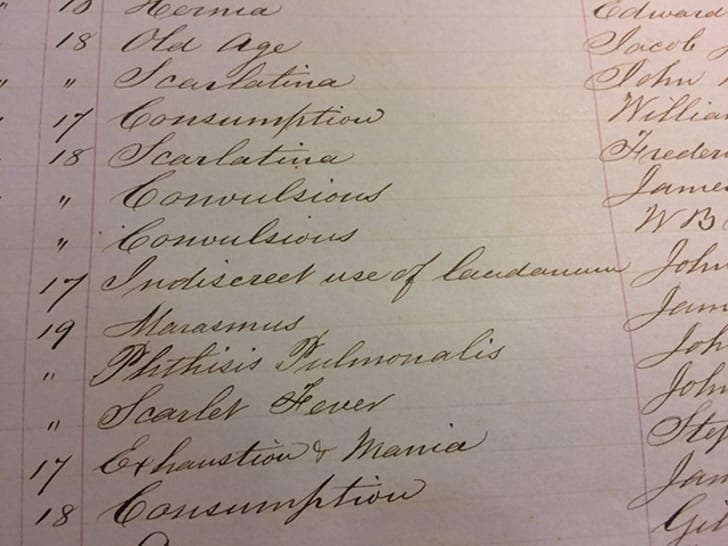 18 Hernia Edward
18 Old Age Jacob
" " Scarlatina John
" 17 Consumption William
18 Scarlatina
" Convulsions James
" Convulsions W B
17 Indiscreet use of laudanum John
19 Marasmus
" Phthisis Pulmonalis John
" Scarlet Fever John
17 Exhaustion & Mania
18 Consumption